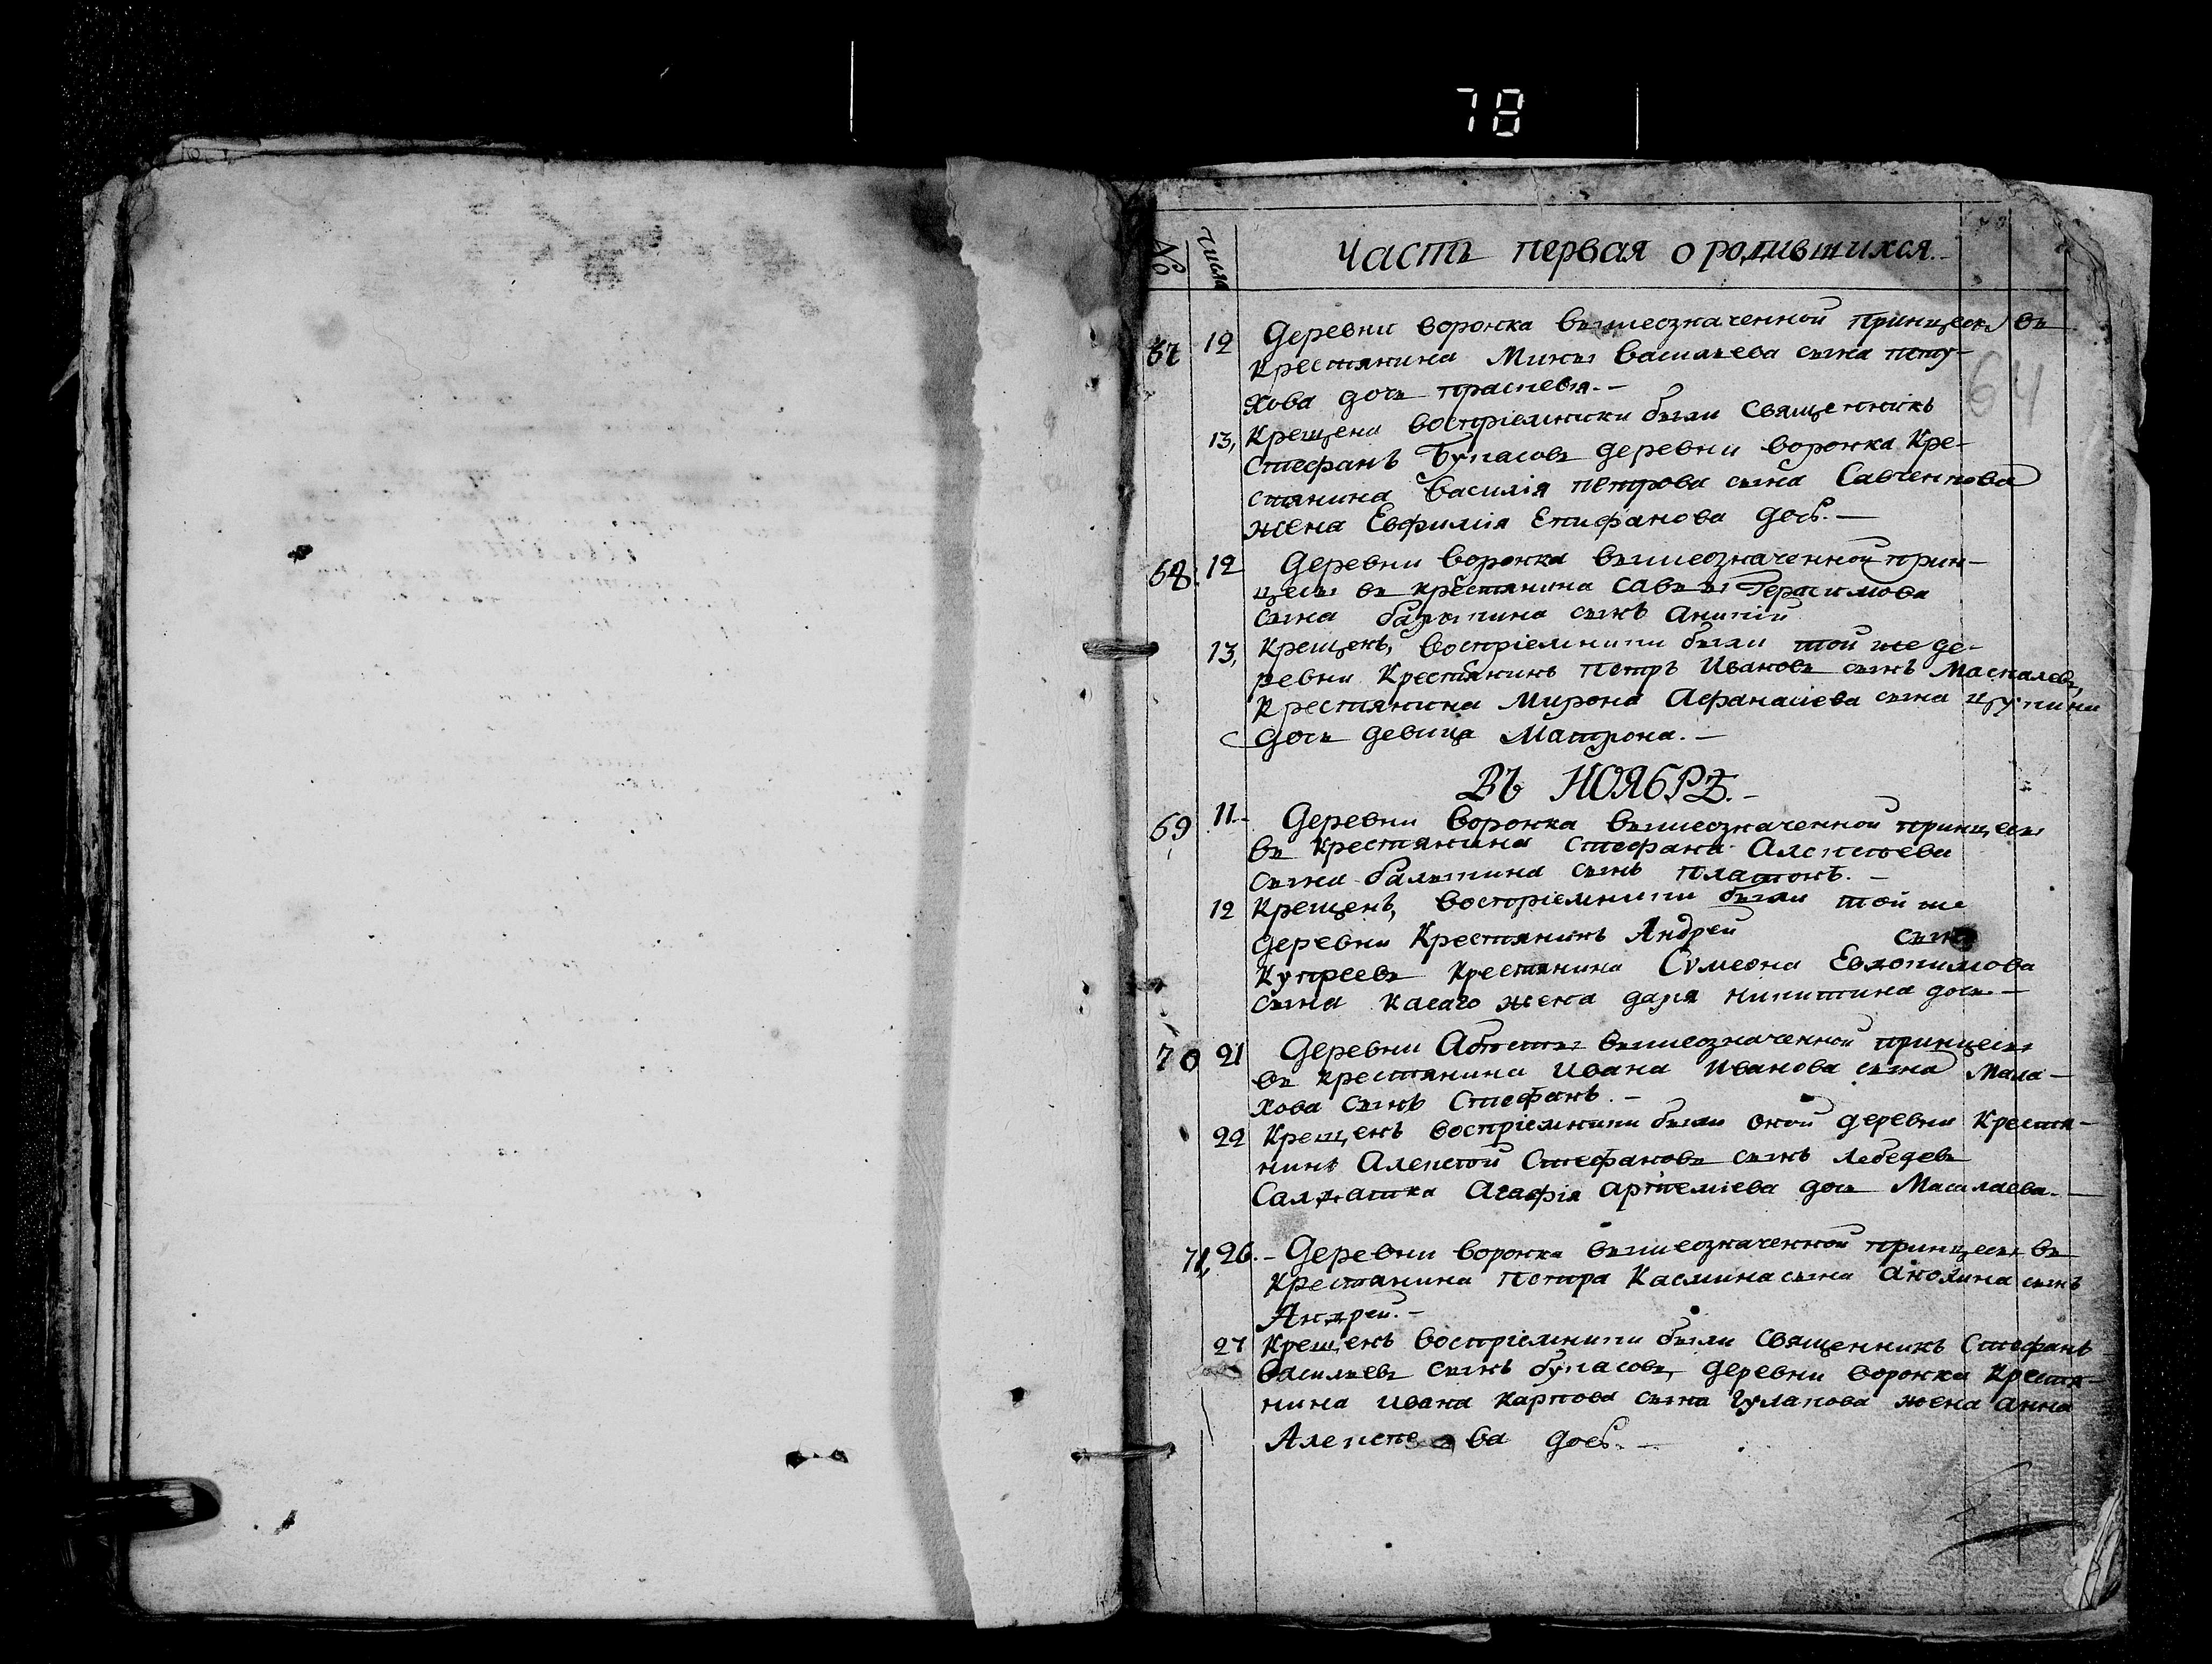 78
№ числа Часть первая о родившихся.
64
67 12 Деревни Воронка вышеозначенной принцессы въ
крестянина Мины Васильева сына пету-
хова дочь праскевя. —
13, Крещена воспріемники были Священникъ
Стефанъ Букасовъ деревни воронка кре-
стянина Василія петрова сына Савченкова
жена Евфимія Епифанова дочь. —
68. 12 Деревни воронка вышеозначенной прин-
цесы въ крестянина Савы Герасимова
сына сынъ
13, Крещенъ, воспріемники были той же де-
ревни Крестянинъ петръ Ивановъ сынъ Маскалевъ,
Крестянина Мирона Афанасіева сына
дочь девица Матрона. —
ВЪ НОЯБРѢ. —
69 11 — Деревни Воронка вышеозначенной принцесы
въ крестянина Стефана Алексеева
сына балытина сынъ платонъ. —
12 Крещенъ, воспріемники были той же
деревни Крестянинъ Андрей сынъ
Купреевъ крестянина Сѵмеона Евлопимова
сына касаго жена даря никитина дочь —
70 21 Деревни вышеозначенной принцесы
въ крестянина Ивана Иванова сына Мала-
хова сынъ Стефанъ. —
22 Крещенъ воспріемники были оной деревни Крестя-
нинъ Алексей Стефановъ сынъ Лебедевъ
Салдатка Агафія артемиева дочь —
71, 26. — Деревни воронка вышеозначенной принцесы въ
крестянина петра Касмина сына анохина сынъ
Андрей. —
27 Крещенъ воспріемники были Священникъ Стефанъ
Васильевъ сынъ букасовъ, деревни воронка Крестя-
нина ивана карпова сына гулакова жена анна
Алексеева дочь. —